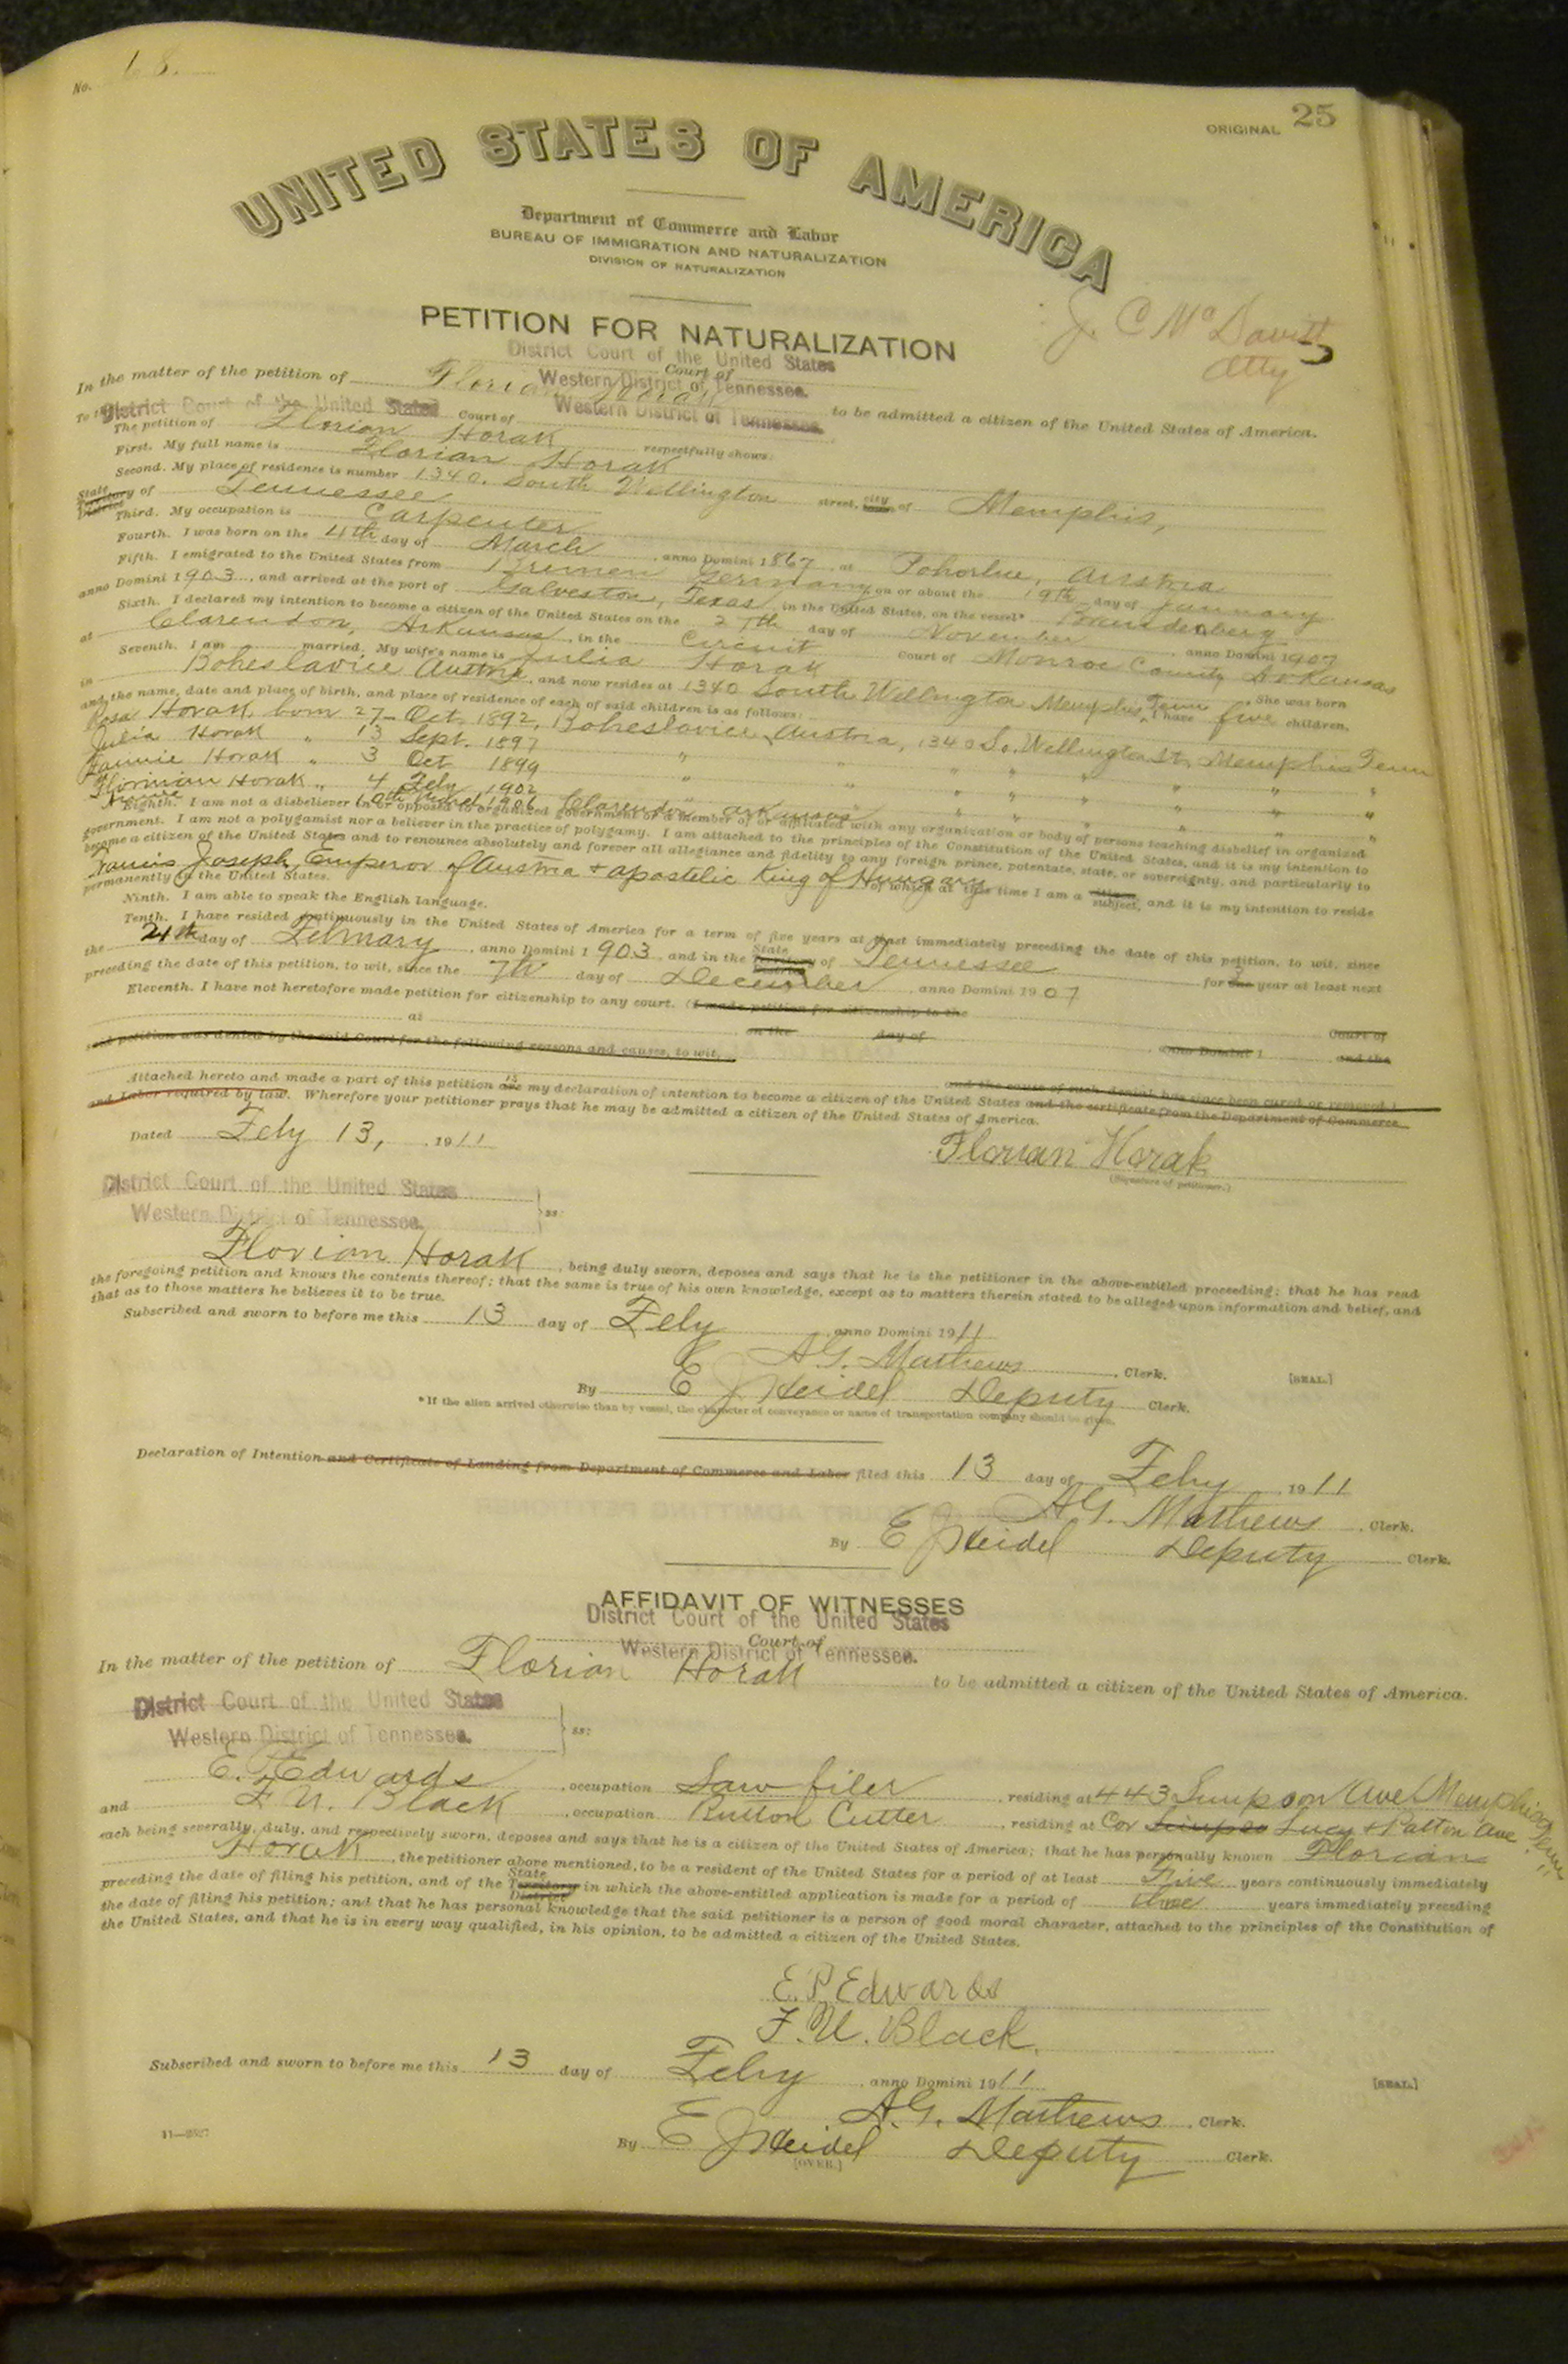 No. 68.
ORIGINAL 25
UNITED STATES OF AMERICA
Department of Commerce and Labor
BUREAU OF IMMIGRATION AND NATURALIZATION
DIVISION OF NATURALIZATION
J. C McDavitt
Atty
PETITION FOR NATURALIZATION
District Court of the United States
Court of
Western District of Tennessee.
In the matter of the petition of Florian Horak to be admitted a citizen of the United States of America.
To the District Court of the United States Court of Western District of Tennessee.
The petition of Florian Horak respectfully shows:
First. My full name is Florian Horak
Second. My place of residence is number 1340. South Wellington street, city of Memphis,
State Territory District of Tennessee
Third. My occupation is Carpenter
Fourth. I was born on the 4th day of March, anno Domini 1867, at Pohorline, Austria
Fifth. I emigrated to the United States from Bremen Germany on or about the 19th day of January
anno Domini 1903, and arrived at the port of Galveston, Texas, in the United States, on the vessel*
Sixth. I declared my intention to become a citizen of the United States on the 27th day of November, anno Domini 1907
at Clarendon, Arkansas, in the Circuit Court of Monroe County Arkansas
Seventh. I am married. My wife's name is Julia Horak She was born
in Boheslavice Austria, and now resides at 1340 South Wellington Memphis Tenn I have five children,
and the name, date and place of birth, and place of residence of each of said children is as follows:
Rosa Horak, born 27- Oct, 1892, Boheslavice, Austria, 1340 So. Wellington St, Memphis Tenn
Julia Horak " 13 Sept. 1897 " " " " " " "
Fannie Horak " 3 Oct 1899 " " " " " " "
Florinian Horak " 4 Feby 1902 " " " " " " "
1906 Clarendon Arkansas
Eighth. I am not a disbeliever in or opposed to organized government or a member of or affiliated with any organization or body of persons teaching disbelief in organized
government. I am not a polygamist nor a believer in the practice of polygamy. I am attached to the principles of the Constitution of the United States, and it is my intention to
become a citizen of the United States and to renounce absolutely and forever all allegiance and fidelity to any foreign prince, potentate, state, or sovereignty, and particularly to
Francis Joseph, Emperor of Austria + apostolic King of Hungary of which at this time I am a citizen subject, and it is my intention to reside
permanently in the United States.
Ninth. I am able to speak the English language.
Tenth. I have resided continuously in the United States of America for a term of five years at least immediately preceding the date of this petition, to wit, since
the 21st day of February, anno Domini 1903, and in the State Territory District of Tennessee for one year at least next
preceding the date of this petition, to wit, since the 7th day of December, anno Domini 1907
Eleventh. I have not heretofore made petition for citizenship to any court. (I made petition for citizenship to the
Court of
at on the day of anno Domini 1 and the
said petition was denied by the said Court for the following reasons and causes, to wit,
and the cause of such denial has since been cured or removed.)
Attached hereto and made a part of this petition are is my declaration of intention to become a citizen of the United States and the certificate from the Department of Commerce
and Labor required by law. Wherefore your petitioner prays that he may be admitted a citizen of the United States of America.
Dated Feby 13, 1911
Florian Horak
(Signature of petitioner.)
District Court of the United States
Western District of Tennessee. ss:
Florian Horak, being duly sworn, deposes and says that he is the petitioner in the above-entitled proceeding; that he has read
the foregoing petition and knows the contents thereof; that the same is true of his own knowledge, except as to matters therein stated to be alleged upon information and belief, and
that as to those matters he believes it to be true.
Subscribed and sworn to before me this 13 day of Feby, anno Domini 1911
A.G. Mathews Clerk. [SEAL.]
By E J Heidel Deputy Clerk.
*If the alien arrived otherwise than by vessel, the character of conveyance or name of transportation company should be given.
Declaration of Intention and Certificate of Landing from Department of Commerce and Labor filed this 13 day of Feby, 1911
A.G. Mathews, Clerk.
By E J Heidel Deputy Clerk.
AFFIDAVIT OF WITNESSES
District Court of the United States
Court of
Western District of Tennessee.
In the matter of the petition of Florian Horak to be admitted a citizen of the United States of America.
District Court of the United States
Western District of Tennessee. ss:
E. P. Edwards, occupation Saw filer, residing at 443 Simpson Ave Memphis Tenn
and F. U. Black, occupation Button Cutter, residing at Cor Simpso Lucy + Patton Ave
each being severally, duly, and respectively sworn, deposes and says that he is a citizen of the United States of America; that he has personally known Florian
Horak, the petitioner above mentioned, to be a resident of the United States for a period of at least Five years continuously immediately
preceding the date of filing his petition, and of the State Territory District in which the above-entitled application is made for a period of years immediately preceding
the date of filing his petition; and that he has personal knowledge that the said petitioner is a person of good moral character, attached to the principles of the Constitution of
the United States, and that he is in every way qualified, in his opinion, to be admitted a citizen of the United States.
E. P. Edwards
F. U. Black.
Subscribed and sworn to before me this 13 day of Feby, anno Domini 1911
[SEAL.]
A.G. Mathews, Clerk.
By E J Heidel Deputy Clerk.
[OVER.]